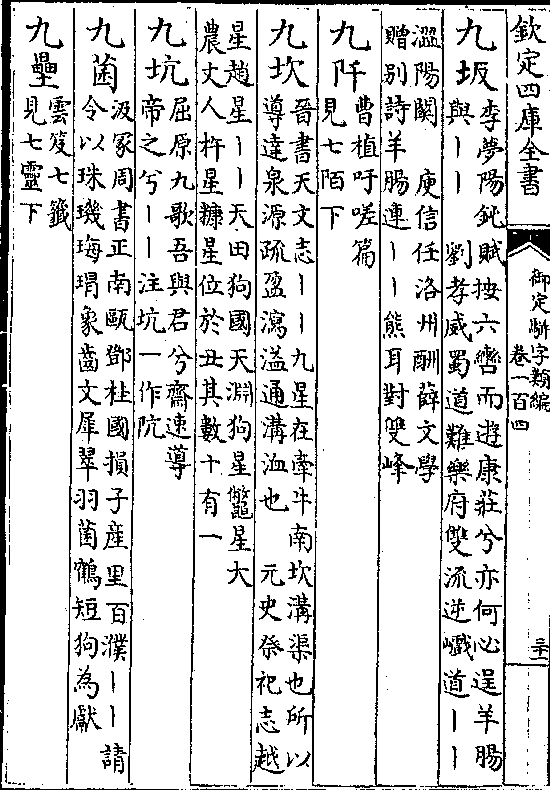 欽定四庫全書
御定駢字類編
卷一百四
三十一
九坂
李夢陽鈍賦按六轡而遊康莊兮亦何必逞羊腸
與丨丨　劉孝威蜀道難樂府雙流逆巇道丨丨
澀陽關　庾信任洛州酬薛文學
贈别詩羊腸連丨丨熊耳對雙峰
九阡
曹植吁嗟篇
見七陌下
九坎
晉書天文志丨丨九星在牽牛南坎溝渠也所以
導達泉源疏盈瀉溢通溝洫也　元史祭祀志越
星趙星丨丨天田狗國天淵狗星鼈星大
農丈人杵星糠星位於丑其數十有一
九坑
屈原九歌吾與君兮齋速導
帝之兮丨丨注坑一作阬
九菌
汲冢周書正南甌鄧桂國損子產里百濮丨丨請
令以珠璣瑇瑁象齒文犀翠羽菌鶴短狗為獻
九壘
雲笈七籤
見七靈下